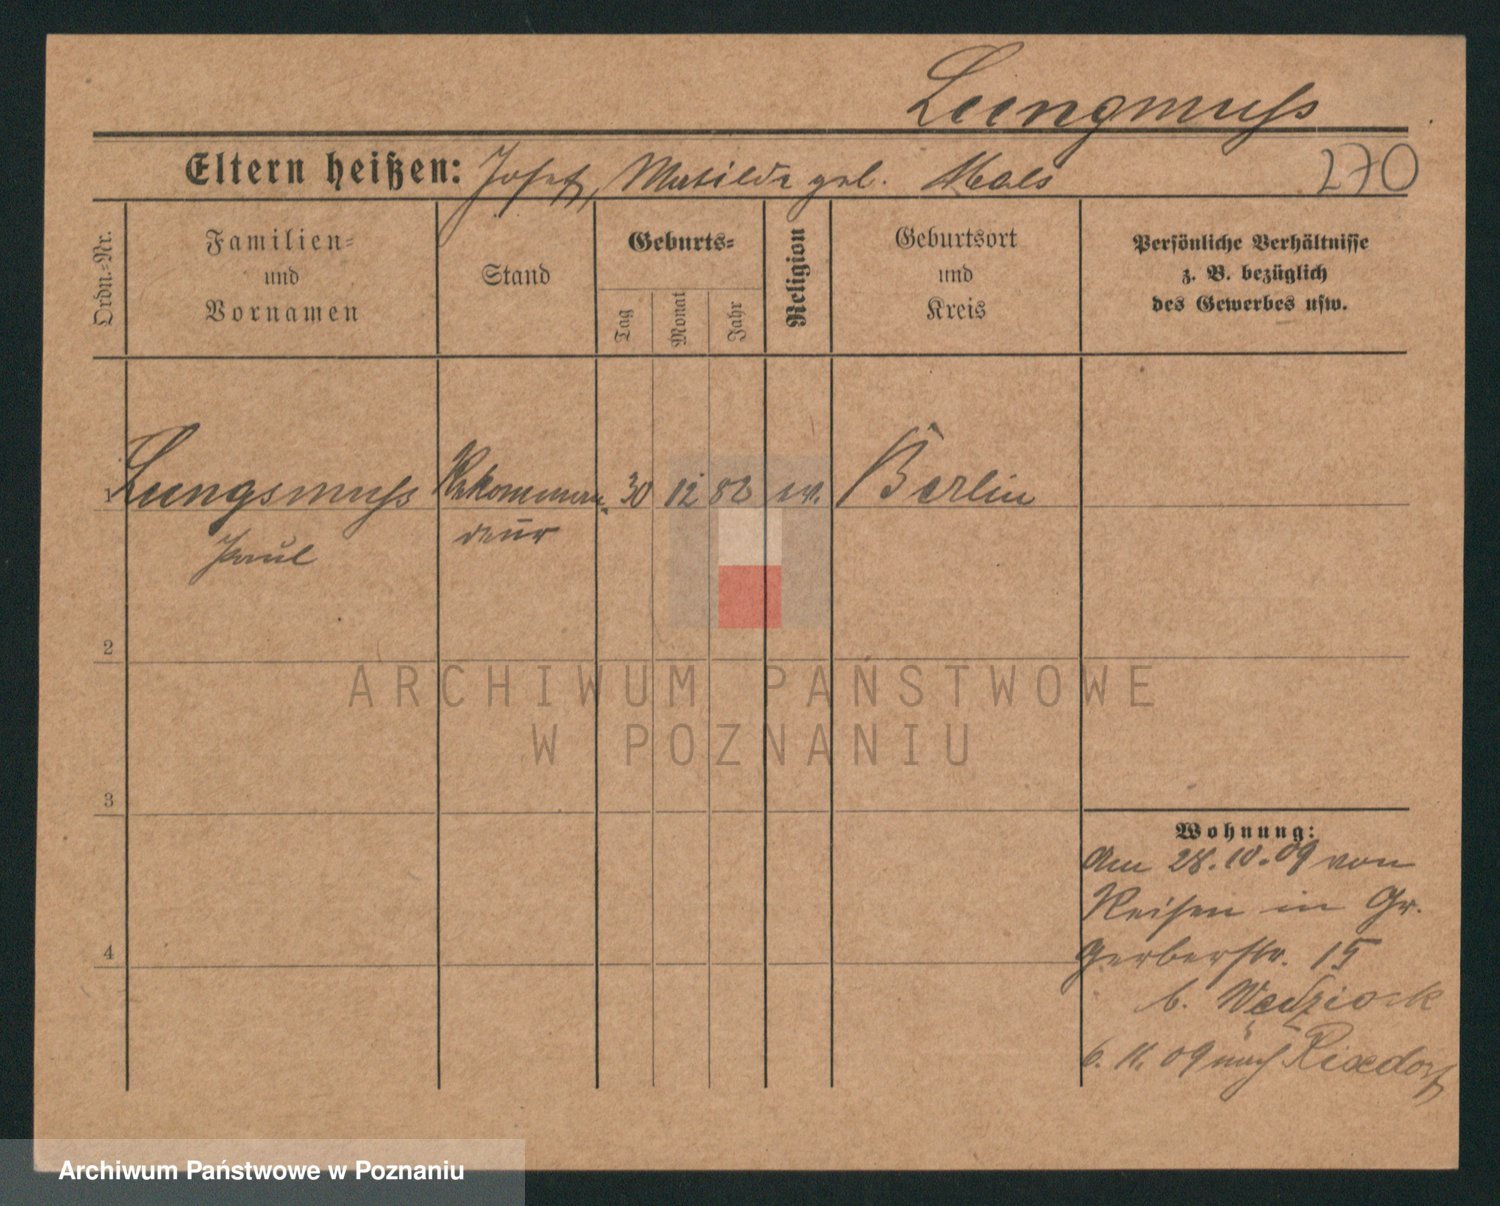 Lungmuss
Eltern heißen: Josef, Matilde geb. Mals
270
Ordn.-Nr.
Familien-
und
Vornamen
Stand
Geburts-
Tag
Monat
Jahr
Religion
Geburtsort
und
Kreis
Persönliche Verhältnisse
z. B. bezüglich
des Gewerbes usw.
1 Lungsmuss Rekomman- 30 12 82 ev. Berlin
Paul deur
2
3
4
Wohnung:
Am 28.10.09 von
Reisen in Gr.
Gerberstr. 15
b.
6. 11. 09 nach Rixdorf
ARCHIWUM PAŃSTWOWE
W POZNANIU
Archiwum Państwowe w Poznaniu